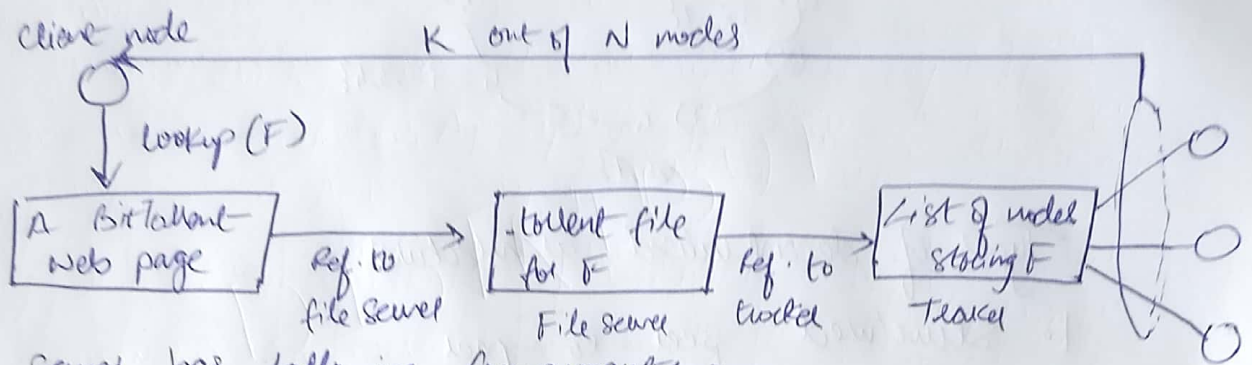 Client node
K out of N nodes
Lookup (F)
A BitTorrent
Web page
Ref. to
file server
.torrent file
for F
File server
Ref. to
tracker
List of nodes
storing F
Tracker
server has following